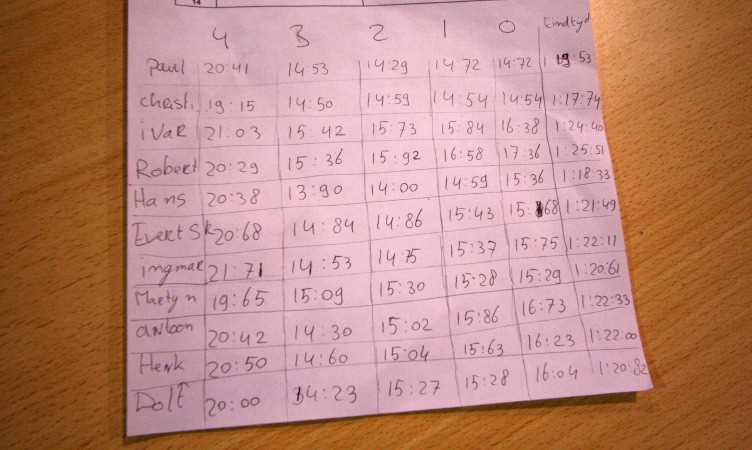 14
4 3 2 1 0 Eindtyd
Paul 20:41 14:53 14:29 14:72 14:72 1 19:53
christ. 19:15 14:50 14:59 14:54 14:54 1:17:74
iVaR 21:03 15:42 15:73 15:84 16:38 1:24:40
Robert 20:29 15:36 15:92 16:58 17:36 1:25:51
Hans 20:38 13:90 14:00 14:59 15:36 1:18:33
Evert Sk 20:68 14:84 14:86 15:43 15:68 1:21:49
ingmar 21:71 14:53 14:75 15:37 15:75 1:22:11
Martyn 19:65 15:09 15:30 15:28 15:29 1:20:61
antoon 20:42 14:30 15:02 15:86 16:73 1:22:33
Henk 20:50 14:60 15:04 15:63 16:23 1:22:00
Dolf 20:00 14:23 15:27 15:28 16:04 1:20:82